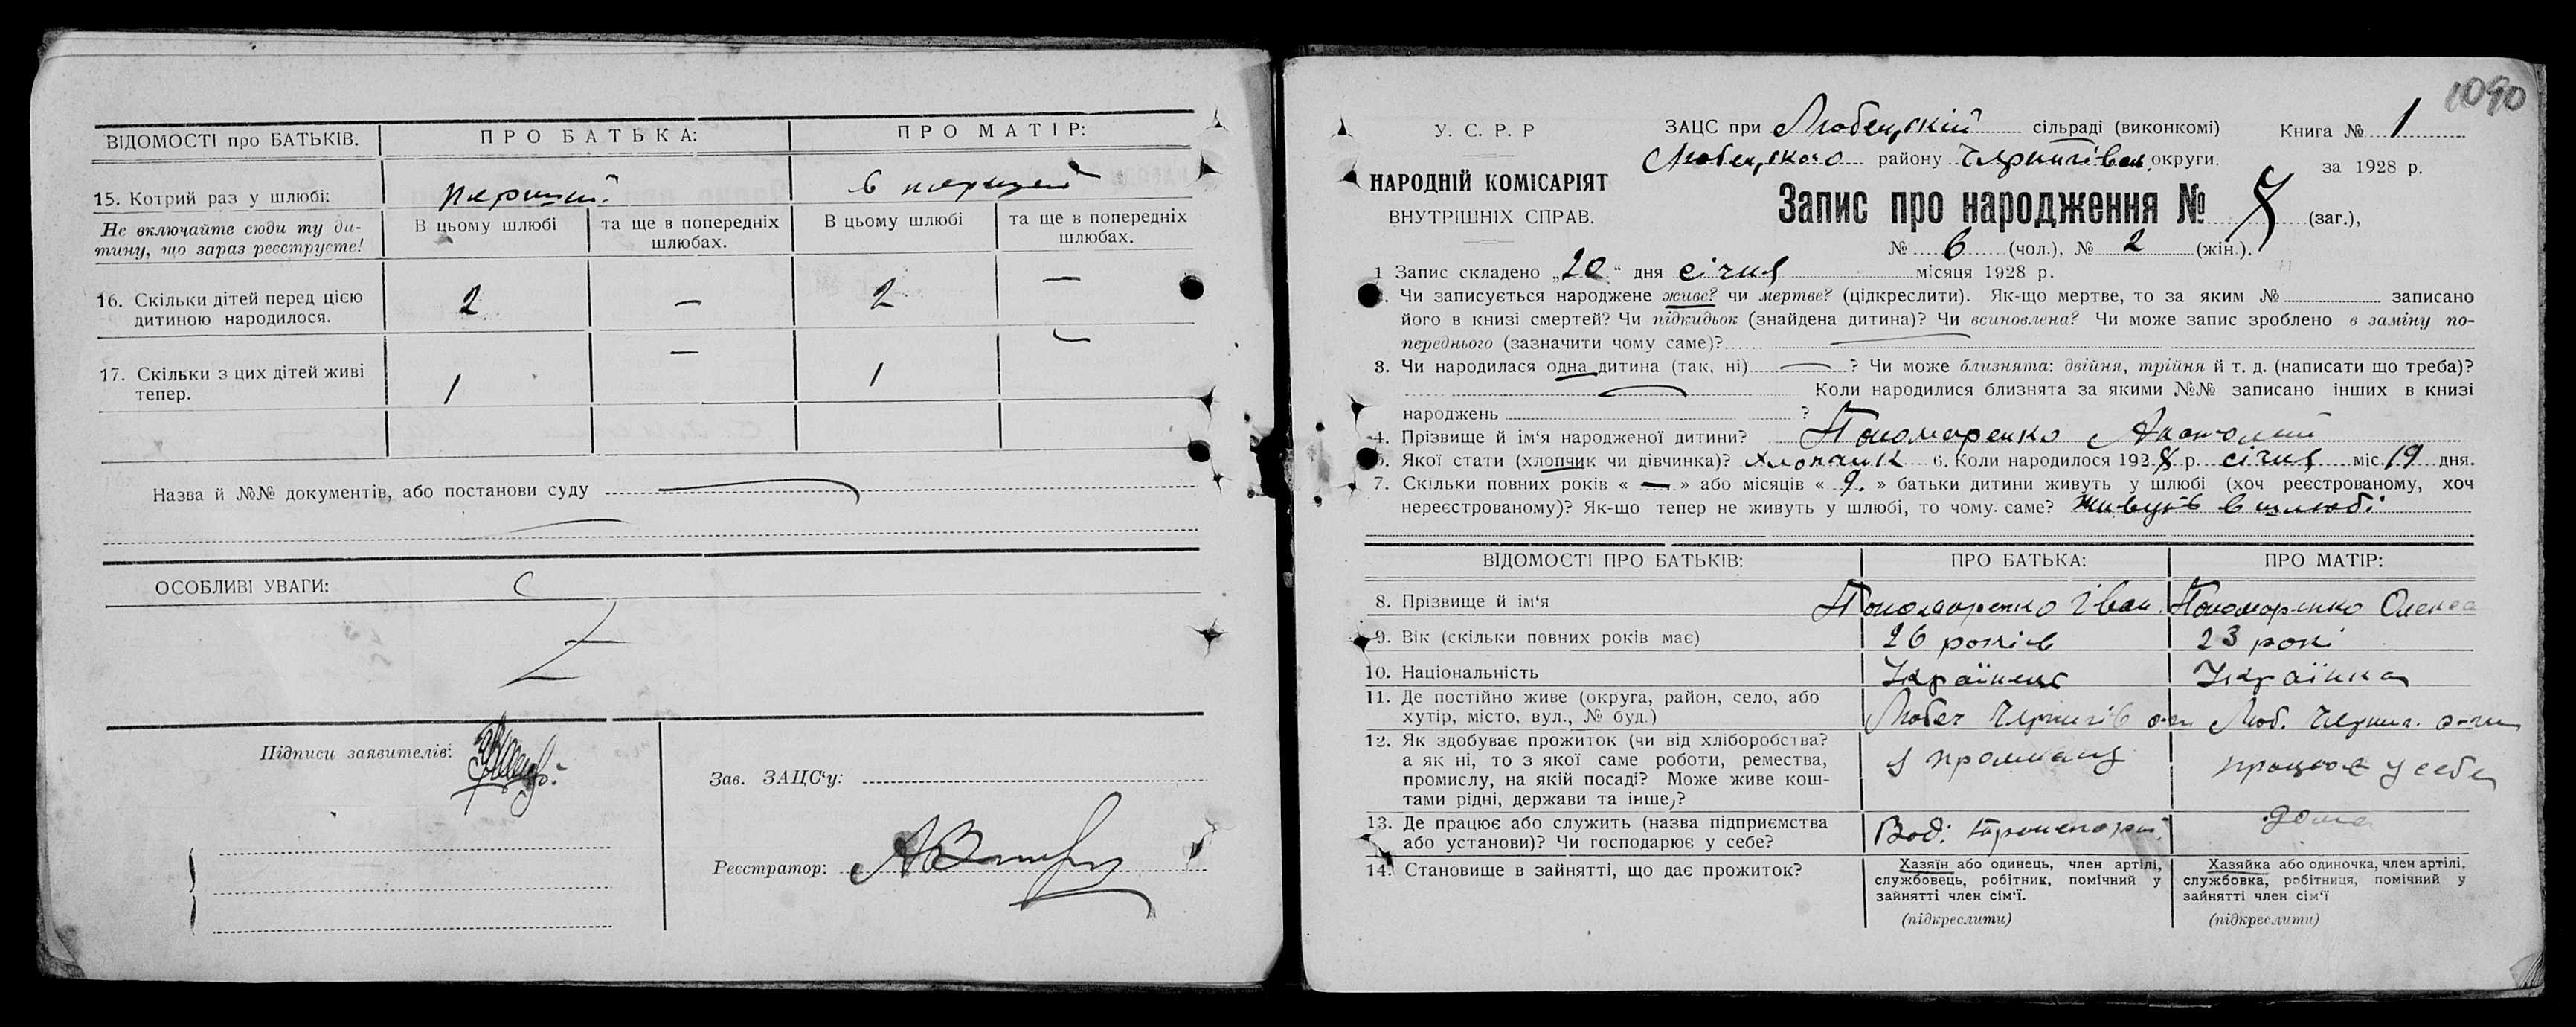 ВІДОМОСТІ про БАТЬКІВ. ПРО БАТЬКА: ПРО МАТІР:
15. Котрий раз у шлюбі: перший. в перший
Не включайте сюди ту ди-
тину, що зараз реєструєте!
В цьому шлюбі та ще в попередніх шлюбах. В цьому шлюбі та ще в попередніх шлюбах.
16. Скільки дітей перед цією
дитиною народилося. 2 — 2 —
17. Скільки з цих дітей живі
тепер. 1 — 1 —
Назва й №№ документів, або постанови суду —
ОСОБЛИВІ УВАГИ:
Підписи заявителів:
Зав. ЗАЦС‘у:
Реєстратор:
1090
У. С. Р. Р
НАРОДНІЙ КОМІСАРІЯТ
ВНУТРІШНІХ СПРАВ.
ЗАЦС при Любецькій сільраді (виконкомі)
Любецького району Чернигівськ. округи.
Книга № 1
за 1928 р.
Запис про народження № 8 (заг.),
№ 6 (чол.), № 2 (жін.).
1 Запис складено „20“ дня січня місяця 1928 р.
Чи записується народжене живе? чи мертве? (підкреслити). Як-що мертве, то за яким № записано
його в книзі смертей? Чи підкидьок (знайдена дитина)? Чи всиновлена? Чи може запис зроблено в заміну по-
переднього (зазначити чому саме)? —
3. Чи народилася одна дитина (так, ні) — ? Чи може близнята: двійня, трійня й т. д. (написати що треба)?
— Коли народилися близнята за якими №№ записано інших в книзі
народжень ?
4. Прізвище й ім‘я народженої дитини? Пономаренко Анатолий
5. Якої стати (хлопчик чи дівчинка)? хлопчик 6. Коли народилося 1928 р. січня міс. 19 дня.
7. Скільки повних років « — » або місяців « 9. » батьки дитини живуть у шлюбі (хоч реєстрованому, хоч
нереєстрованому)? Як-що тепер не живуть у шлюбі, то чому саме? живуть в шлюбі
ВІДОМОСТІ ПРО БАТЬКІВ: ПРО БАТЬКА: ПРО МАТІР:
8. Прізвище й ім‘я Пономаренко Іван Пономаренко Олекса
9. Вік (скільки повних років має) 26 років 23 рокі
10. Національність Українець Українка
11. Де постійно живе (округа, район, село, або
хутір, місто, вул., № буд.) Любеч Чернигів о-ги Люб. Черниг. о-ги
12. Як здобуває прожиток (чи від хліборобства?
а як ні, то з якої саме роботи, ремества,
промислу, на якій посаді? Може живе кош-
тами рідні, держави та інше,? працює у себе
13. Де працює або служить (назва підприємства
або установи)? Чи господарює у себе? Вод. транспорт. дома
14. Становище в зайнятті, що дає прожиток?
Хазяїн або одинець, член артілі,
службовець, робітник, помічний у
зайнятті член сім‘ї.
(підкреслити)
Хазяйка або одиночка, член артілі,
службовка, робітниця, помічний у
зайнятті член сім‘ї
(підкреслити)